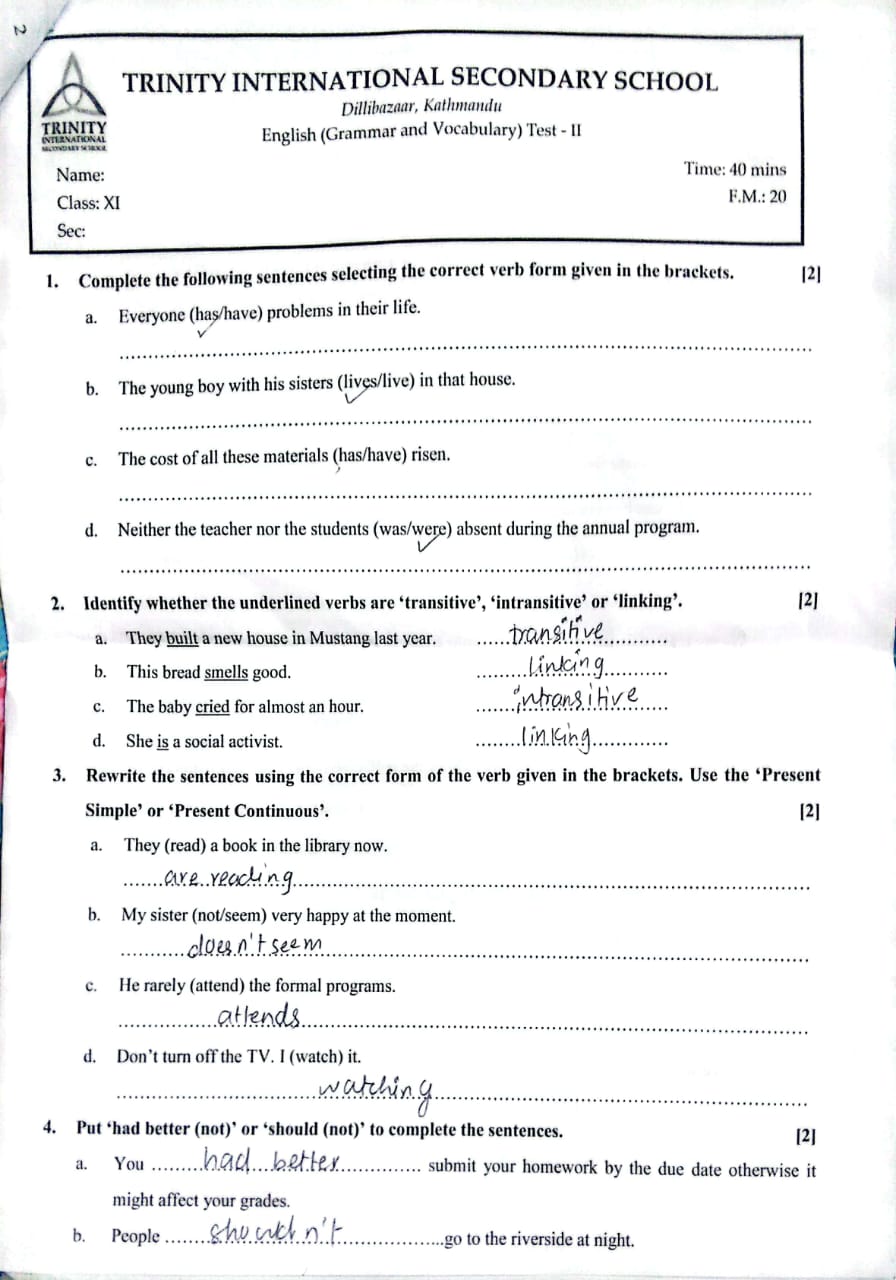 2
TRINITY INTERNATIONAL SECONDARY SCHOOL
Dillibazaar, Kathmandu
English (Grammar and Vocabulary) Test - II
TRINITY
INTERNATIONAL
SECONDARY SCHOOL
Name:
Time: 40 mins
Class: XI
F.M.: 20
Sec:
1. Complete the following sentences selecting the correct verb form given in the brackets. [2]
a. Everyone (has/have) problems in their life.
b. The young boy with his sisters (lives/live) in that house.
c. The cost of all these materials (has/have) risen.
d. Neither the teacher nor the students (was/were) absent during the annual program.
2. Identify whether the underlined verbs are ‘transitive’, ‘intransitive’ or ‘linking’. [2]
a. They built a new house in Mustang last year. ......transitive............
b. This bread smells good. .........linking...........
c. The baby cried for almost an hour. .......intransitive......
d. She is a social activist. ........linking.............
3. Rewrite the sentences using the correct form of the verb given in the brackets. Use the ‘Present
Simple’ or ‘Present Continuous’. [2]
a. They (read) a book in the library now.
.......are reading.......
b. My sister (not/seem) very happy at the moment.
...........doesn't seem.......
c. He rarely (attend) the formal programs.
................attends.......
d. Don’t turn off the TV. I (watch) it.
.................watching.......
4. Put ‘had better (not)’ or ‘should (not)’ to complete the sentences. [2]
a. You ........had better................ submit your homework by the due date otherwise it
might affect your grades.
b. People .......shouldn't.....................go to the riverside at night.